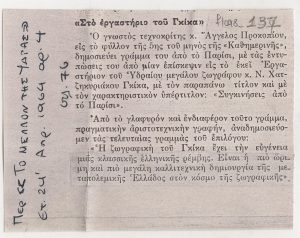 «Στὸ ἐργαστήριο τοῦ Γκίκα»
137
Ὁ γνωστὸς τεχνοκρίτης κ. Ἄγγελος Προκοπίου,
εἰς τὸ φύλλον τῆς 5ης τοῦ μηνὸς τῆς «Καθημερινῆς»,
δημοσιεύει γράμμα του ἀπὸ τὸ Παρίσι, μὲ τὰς ἐντυ-
πώσεις του ἀπὸ μίαν ἐπίσκεψιν εἰς τὸ ἐκεῖ Ἐργα-
στήριον τοῦ Ὑδραίου μεγάλου ζωγράφου κ. Ν. Χατ-
ζηκυριάκου Γκίκα, μὲ τὸν παραπάνω τίτλον καὶ μὲ
τὸν χαρακτηριστικὸν ὑπέρτιτλον: «Συγκινήσεις ἀπὸ
τὸ Παρίσι».
Ἀπὸ τὸ γλαφυρὸν καὶ ἐνδιαφέρον τοῦτο γράμμα,
πραγματικὴν ἀριστοτεχνικὴν γραφήν, ἀναδημοσιεύο-
μεν τὰς τελευταίας γραμμὰς τοῦ ἐπιλόγου:
«Ἡ ζωγραφικὴ τοῦ Γκίκα ἔχει τὴν εὐγένεια
μιᾶς κλασσικῆς ἑλληνικῆς ρέμβης. Εἶναι ἡ πιὸ ὥρι-
μη καὶ πιὸ μεγάλη καλλιτεχνικὴ δημιουργία τῆς με-
ταπολεμικῆς Ἑλλάδος στὸν κόσμο τῆς ζωγραφικῆς».
Περ. «Το ΜΕΛΛΟΝ ΤΗΣ ΥΔΡΑΣ»
Ετ. 24 Απρ. 1964 αρ. 4
σελ. 76